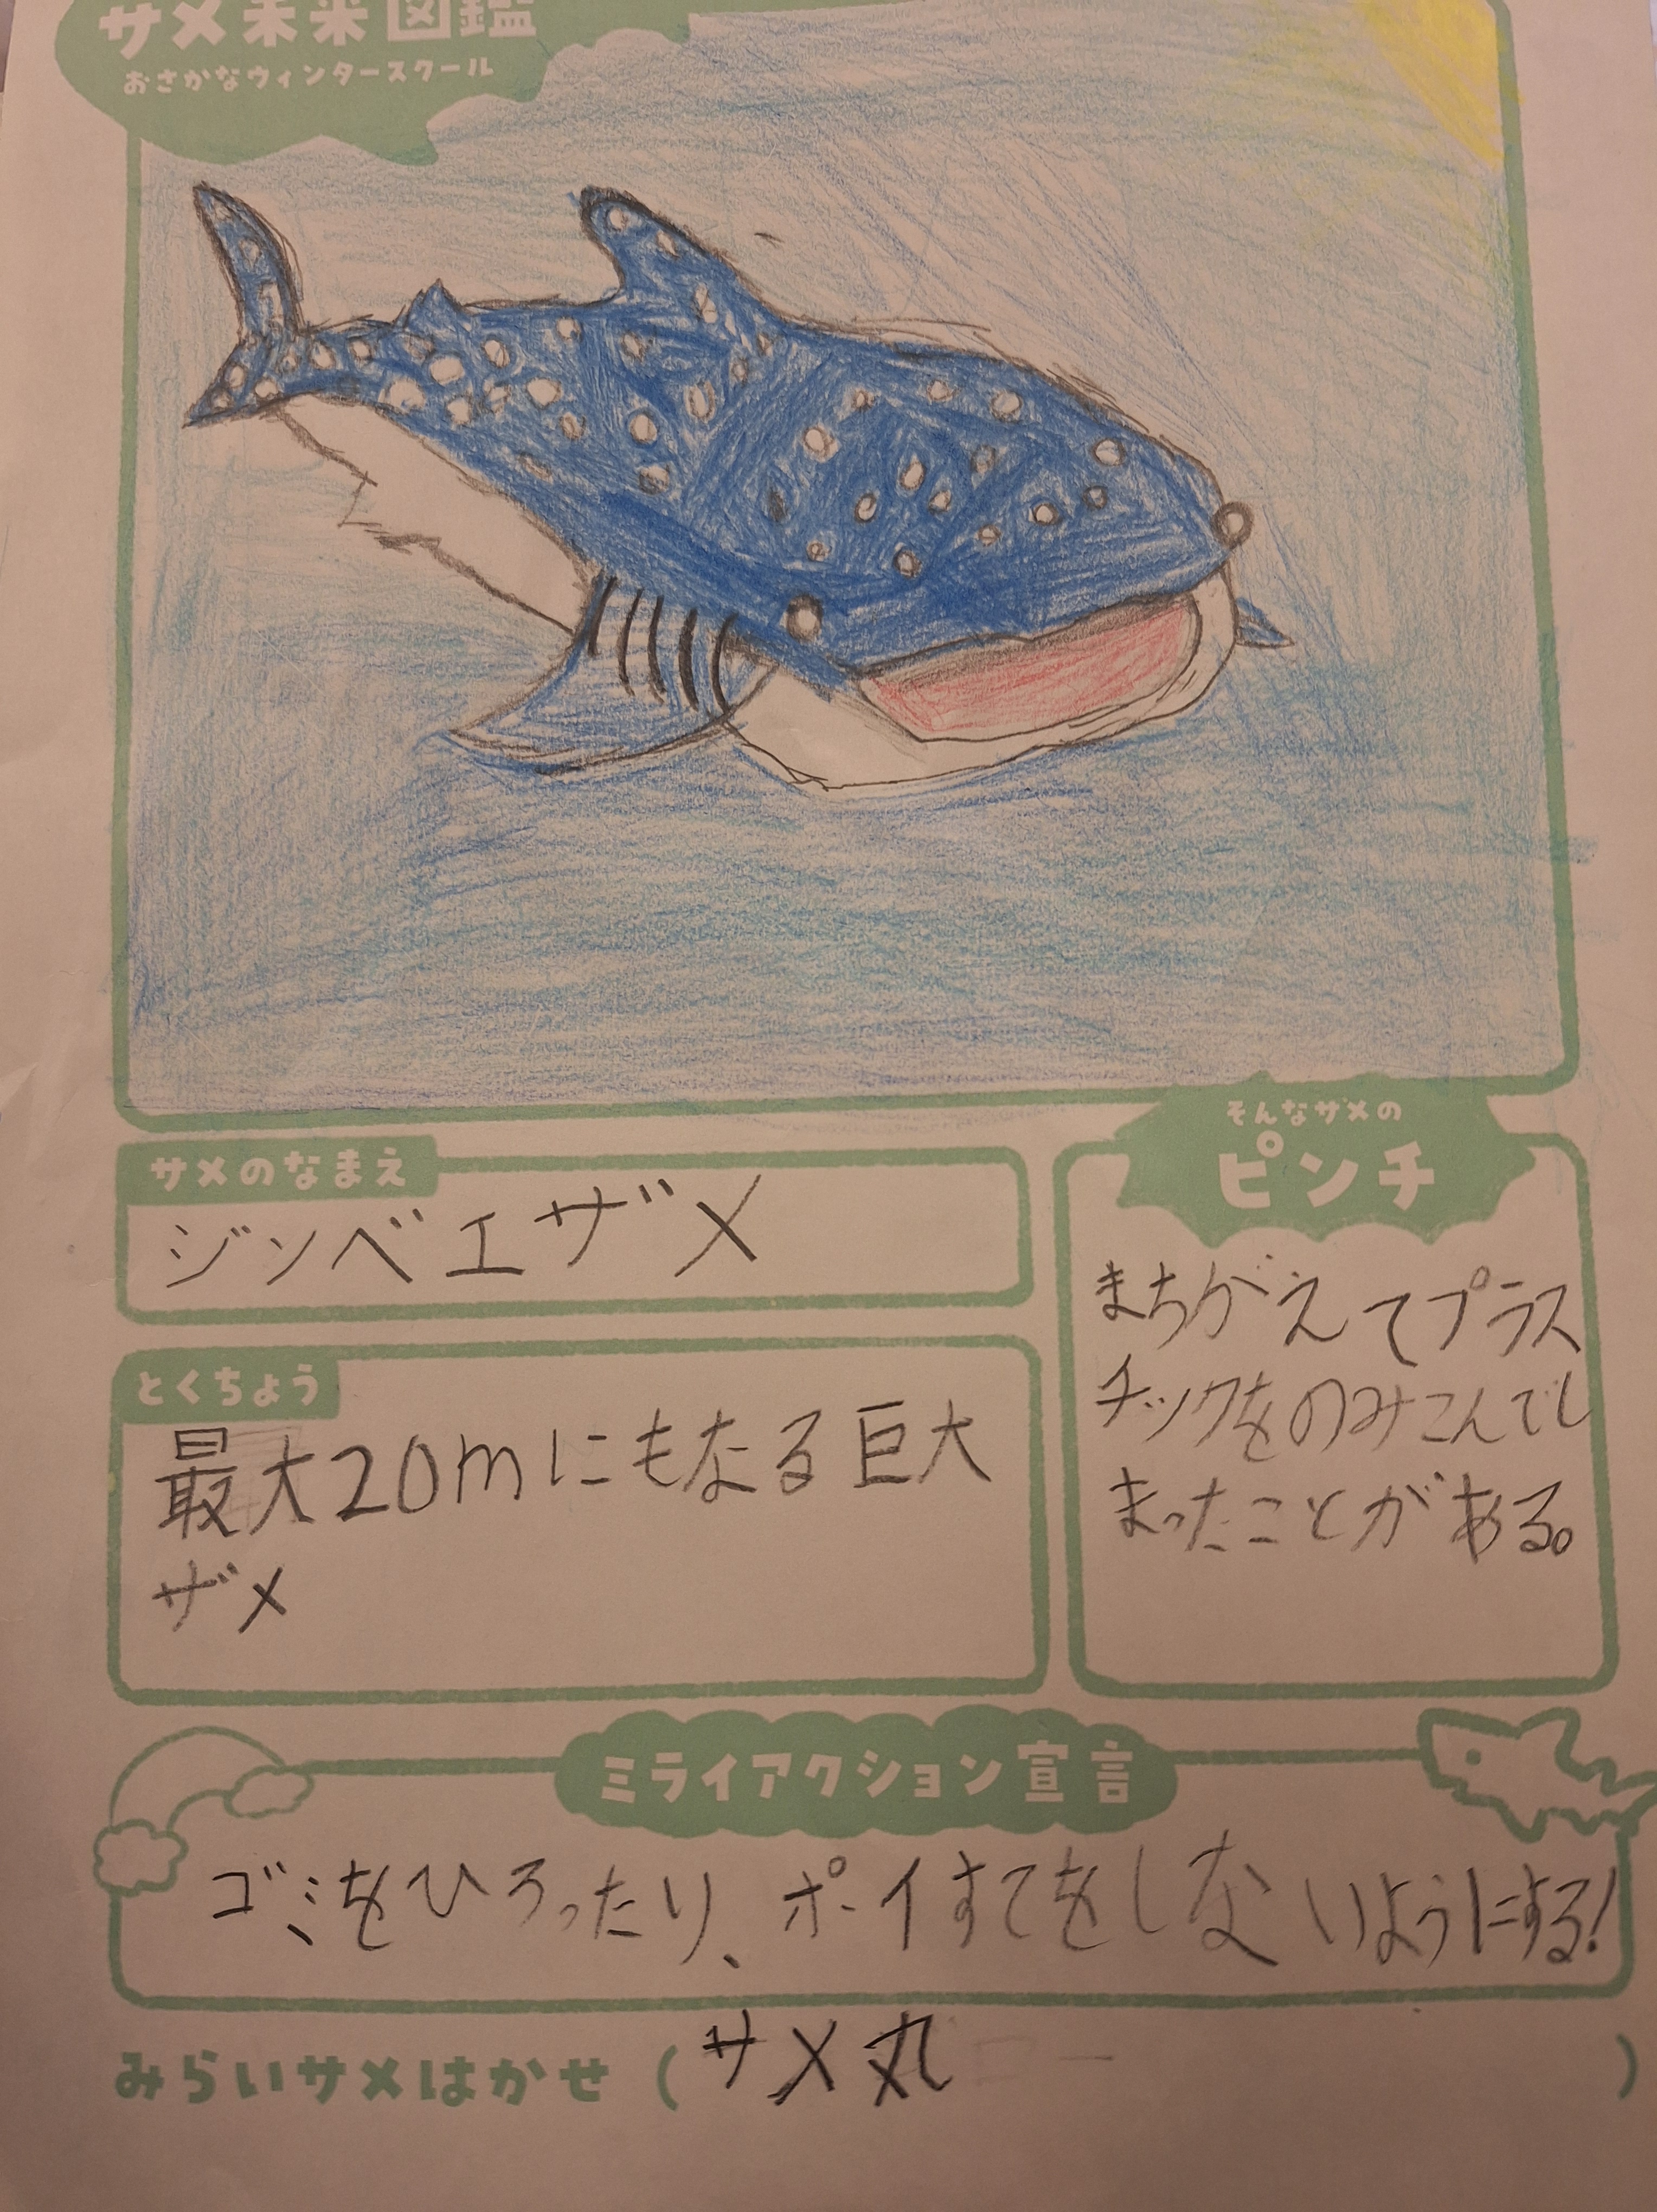 サメ未来図鑑
おさかなウィンタースクール
サメのなまえ
ジンベエザメ
とくちょう
最大20mにもなる巨大
ザメ
そんなサメの
ピンチ
まちがえてプラス
チックをのみこんでし
まったことがある。
ミライアクション宣言
ゴミをひろったり、ポイすてをしないようにする!
みらいサメはかせ(サメ丸)